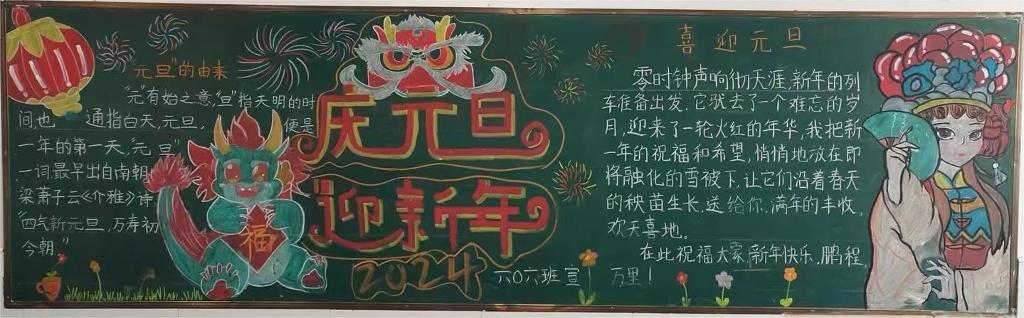 "元旦"的由来
"元"有始之意,"旦"指天明的时
间,也 通指白天,元旦, 便是
一年的第一天,"元旦"
一词最早出自南朝
梁萧子云《介雅》诗
"四气新元旦,万寿初
今朝"
福
庆元旦
迎新年
2024
六〇六班宣
喜迎元旦
零时钟声响彻天涯,新年的列
车准备出发,它驮去了一个难忘的岁
月,迎来了一轮火红的年华,我把新
一年的祝福和希望,悄悄地放在即
将融化的雪被下,让它们沿着春天
的秧苗生长,送给你,满年的丰收,
欢天喜地。
在此祝福大家,新年快乐,鹏程
万里!